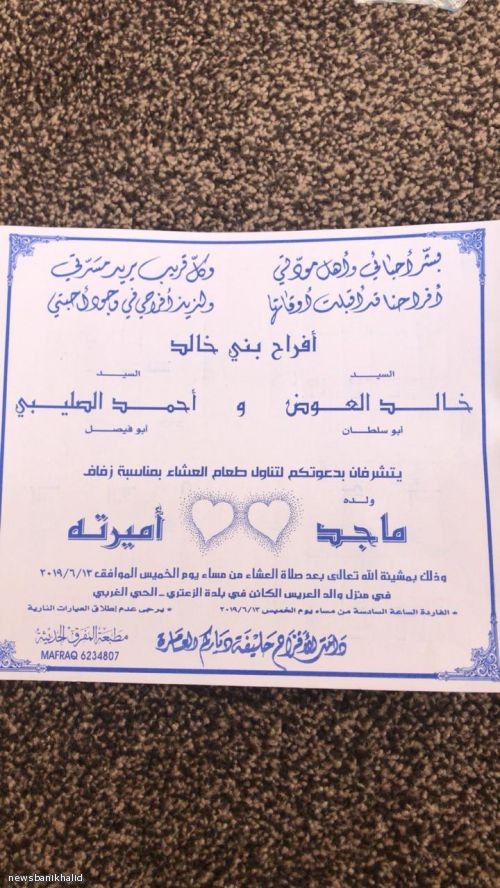 بشّر أحبائي وأهل مودتي وكلّ قريب يريد مسرّتي
أفراحنا قد أقبلت أوقاتها ولمزيد أفراحي في وجود أحبتي
أفراح بني خالد
السيد السيد
خالد العوض و أحمد الصليبي
أبو سلطان أبو فيصل
يتشرفان بدعوتكم لتناول طعام العشاء بمناسبة زفاف
ولده
ماجد أميرته
وذلك بمشيئة الله تعالى بعد صلاة العشاء من مساء يوم الخميس الموافق ٢٠١٩/٦/١٣
في منزل والد العريس الكائن في بلدة الزعتري - الحي الغربي
* الفاردة الساعة السادسة من مساء يوم الخميس ٢٠١٩/٦/١٣ * يرجى عدم إطلاق العيارات النارية
دامت الأفراح حليفة دياركم العامرة
مطبعة المفرق الحديثة
MAFRAQ 6234807
newsbanikhalid